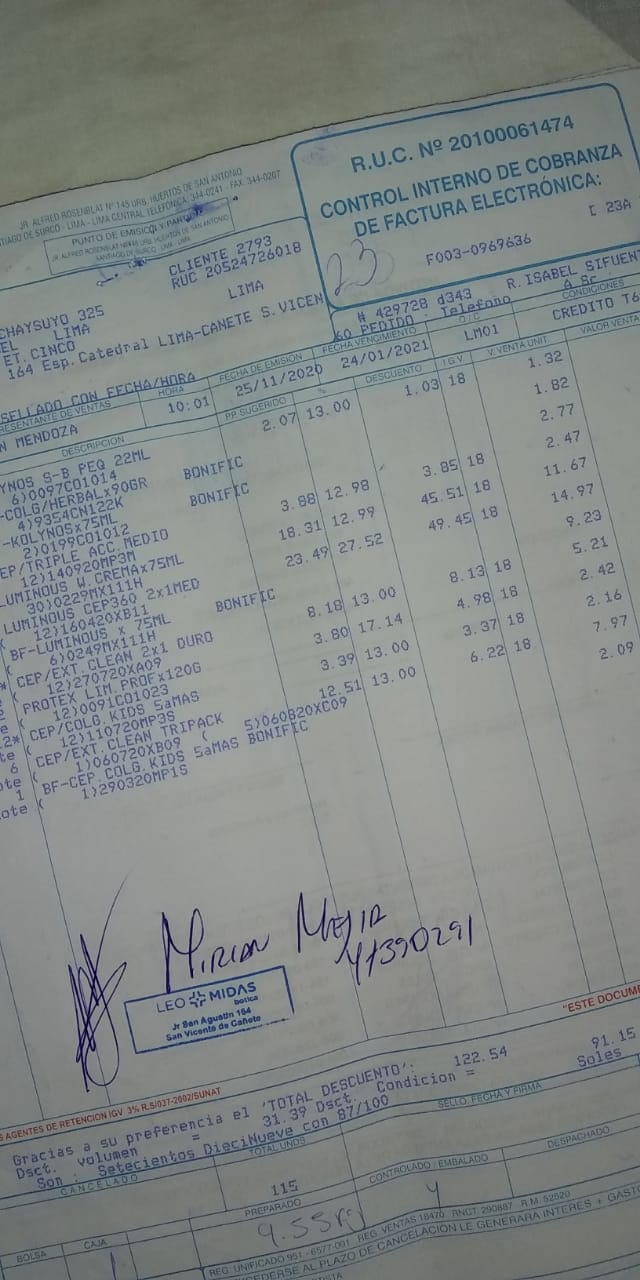 R.U.C. Nº 20100061474
CONTROL INTERNO DE COBRANZA
DE FACTURA ELECTRÓNICA:
[ 23A
F003-0969636
23
JR. ALFRED ROSENBLAT Nº 145 URB. HUERTOS DE SAN ANTONIO
TIAGO DE SURCO - LIMA - LIMA CENTRAL TELEFÓNICA: 344-0241 - FAX. 344-0207
PUNTO DE EMISIÓN Y PARTIDA
CLIENTE 2793
RUC 20524726018
CHAYSUYO 325 LIMA
EL LIMA
ET.CINCO
164 Esp.Catedral LIMA-CANETE S.VICEN
# 429728 d343 R.ISABEL SIFUENT
PEDIDO : Telefono A SC
SELLADO CON FECHA/HORA
RESENTANTE DE VENTAS HORA FECHA DE EMISIÓN FECHA VENCIMIENTO O / C CONDICIONES
N MENDOZA 10:01 25/11/2020 24/01/2021 LM01 CREDITO T6
DESCRIPCION PP. SUGERIDO % DESCUENTO I.G.V V. VENTA UNIT. VALOR VENTA
YNOS S-B PEQ 22ML 2.07 13.00 1.03 18 1.32
6)0097CO1014
-COLG/HERBALx90GR BONIFIC 1.82
4)9354CN122K
-KOLYNOSx75ML BONIFIC 2.77
2)0199CO1012
EP/TRIPLE ACC.MEDIO 3.88 12.98 3.85 18 2.47
12)140920MP3M
LUMINOUS W.CREMAx75ML 18.31 12.99 45.51 18 11.67
30)0229MX111H
LUMINOUS CEP360 2x1MED 23.49 27.52 49.45 18 14.97
12)160420XB11
BF-LUMINOUS x 75ML BONIFIC 9.23
6)0249MX111H
CEP/EXT.CLEAN 2x1 DURO 8.18 13.00 8.13 18 5.21
12)270720XA09
PROTEX LIM.PROFx120G 3.80 17.14 4.98 18 2.42
12)0091CO1023
CEP/COLG.KIDS 5aMAS 3.39 13.00 3.37 18 2.16
12)110720MP3S
CEP/EXT.CLEAN TRIPACK 12.51 13.00 6.22 18 7.97
1)060720XB09 ( 5)060820XC09
BF-CEP.COLG.KIDS 5aMAS BONIFIC 2.09
1)290320MP1S
Mirian Mejia
41390291
LEO MIDAS
botica
Jr San Agustin 164
San Vicente de Cañete
"ESTE DOCUME
AGENTES DE RETENCION IGV 3% R.S/037-2002/SUNAT
Gracias a su preferencia el 'TOTAL DESCUENTO': 122.54
Dsct. volumen = 31.39 Dsct. Condicion = 91.15
Son : Setecientos DieciNueve con 87/100 Soles
CANCELADO TOTAL UNDS SELLO, FECHA Y FIRMA
115
PREPARADO CONTROLADO / EMBALADO DESPACHADO
BOLSA CAJA 4
REG. UNIFICADO 951 - 6577-001 REG. VENTAS 18470 RNCT. 290887 R.M. 52520
CEDERSE AL PLAZO DE CANCELACIÓN LE GENERARÁ INTERES + GASTO